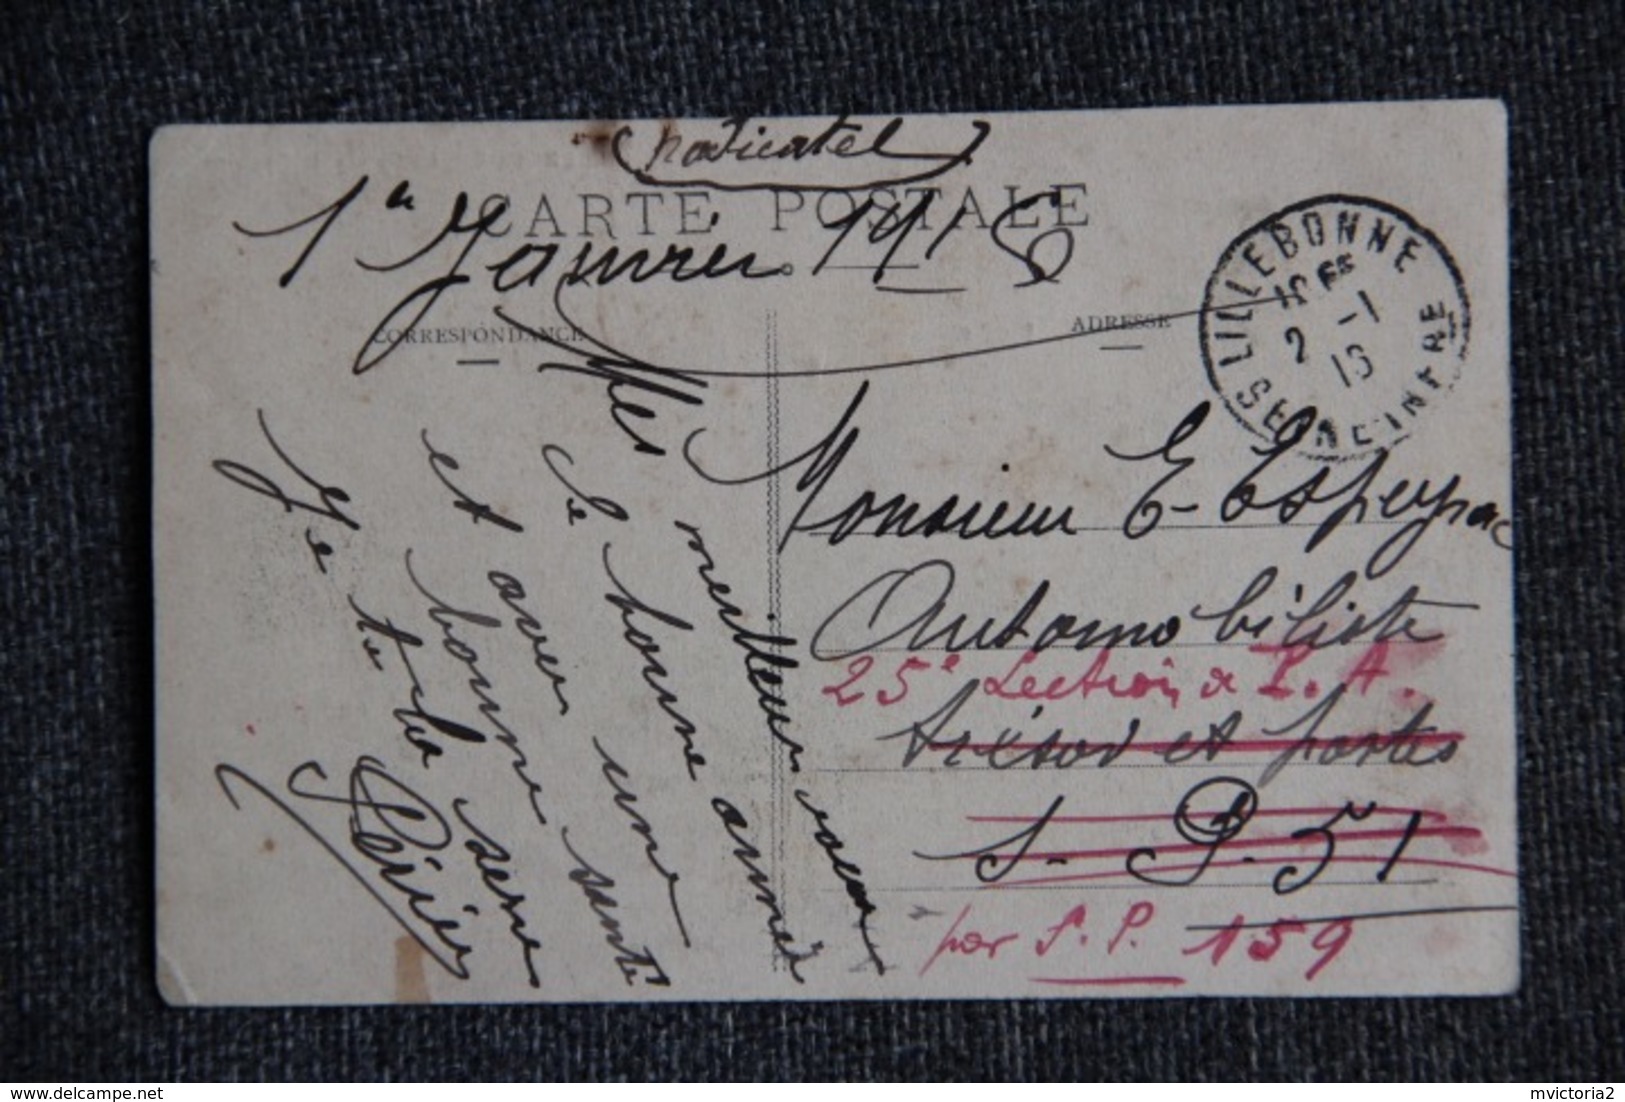 CARTE POSTALE
1er Janvier 1916
CORRESPONDANCE
ADRESSE
LILLEBONNE
2 -1
16
SEINE INFRE
Mes meilleurs voeux
de bonne année
et avec une
bonne santé
Je te la serre
Périer
Monsieur E. Espeyrac
Automobiliste
25e Section de P. A.
trésor et postes
S. P. 51
par S. P. 159
delcampe.net
mvictoria2